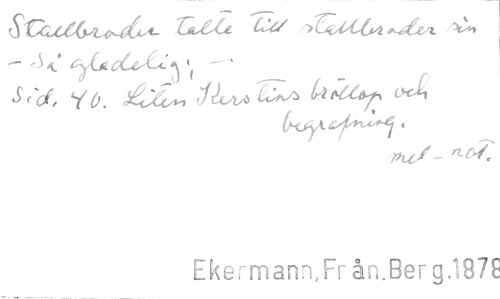 Stallbroder talte till stallbroder sin
– Så gladelig; –
Sid. 40. Liten Kerstins bröllop och
begrafning.
mel-not.
Ekermann,Från.Berg.1878